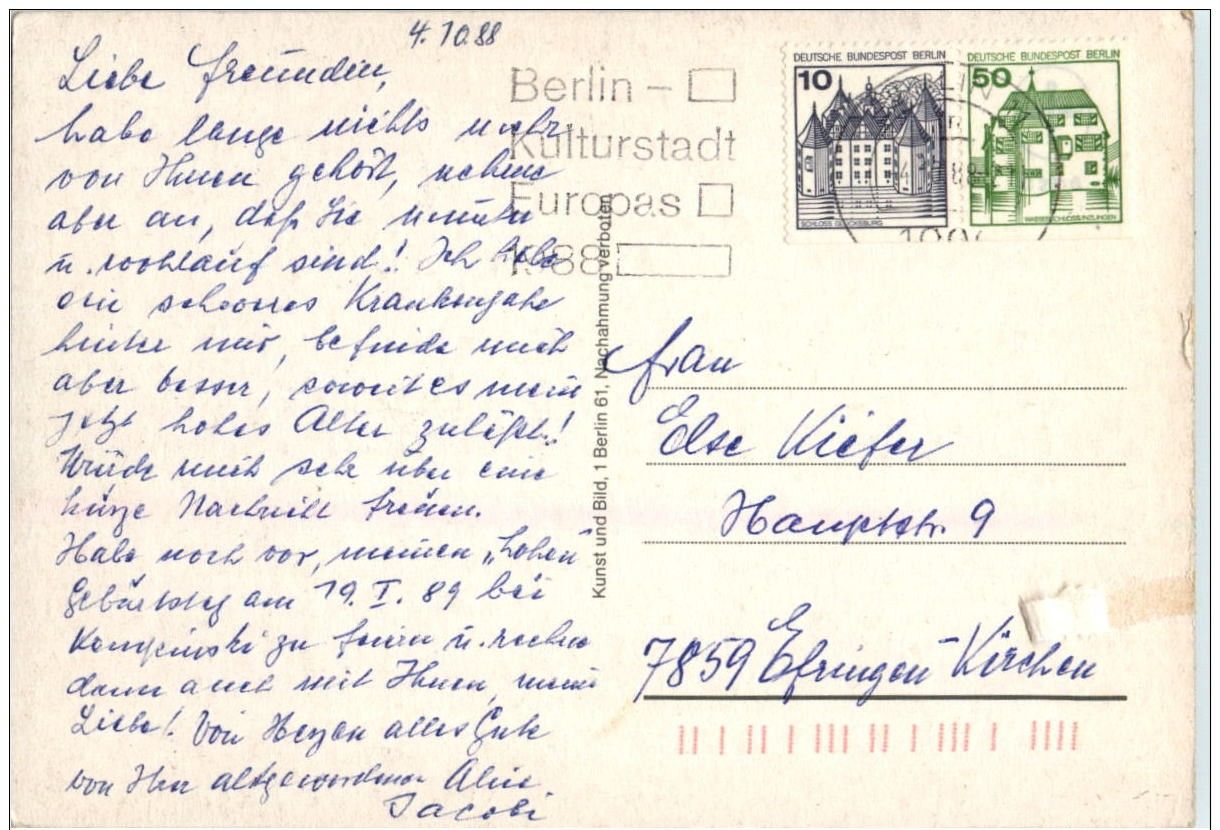 4. 10. 88
Liebe Freundin,
habe lange nichts mehr
von Ihnen gehört, nehme
aber an, daß Sie munter
u. wohlauf sind! Ich habe
ein schweres Krankenjahr
hinter mir, befinde mich
aber besser, soweit es mein
jetzt hohes Alter zuläßt!
Würde mich sehr über eine
kurze Nachricht freuen.
Habe noch vor, meinen „hohen"
Geburtstag am 19. I. 89 bei
Kempinski zu feiern u. rechne
dann auch mit Ihnen, meine
Liebe! Von Herzen alles Gute
von Ihrer altgewordenen Alice
Jacobi
Berlin –
Kulturstadt
Europas
1988
DEUTSCHE BUNDESPOST BERLIN
10
SCHLOSS GLÜCKSBURG
DEUTSCHE BUNDESPOST BERLIN
50
WASSERSCHLOSS INZLINGEN
Kunst und Bild, 1 Berlin 61, Nachahmung verboten
Frau
Else Kiefer
Hauptstr. 9
7859 Efringen-Kirchen